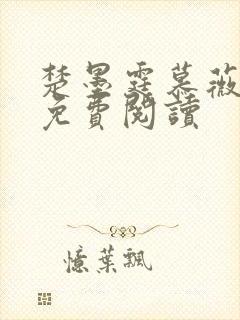 楚墨霆慕薇
免費閱讀
憶葉飄